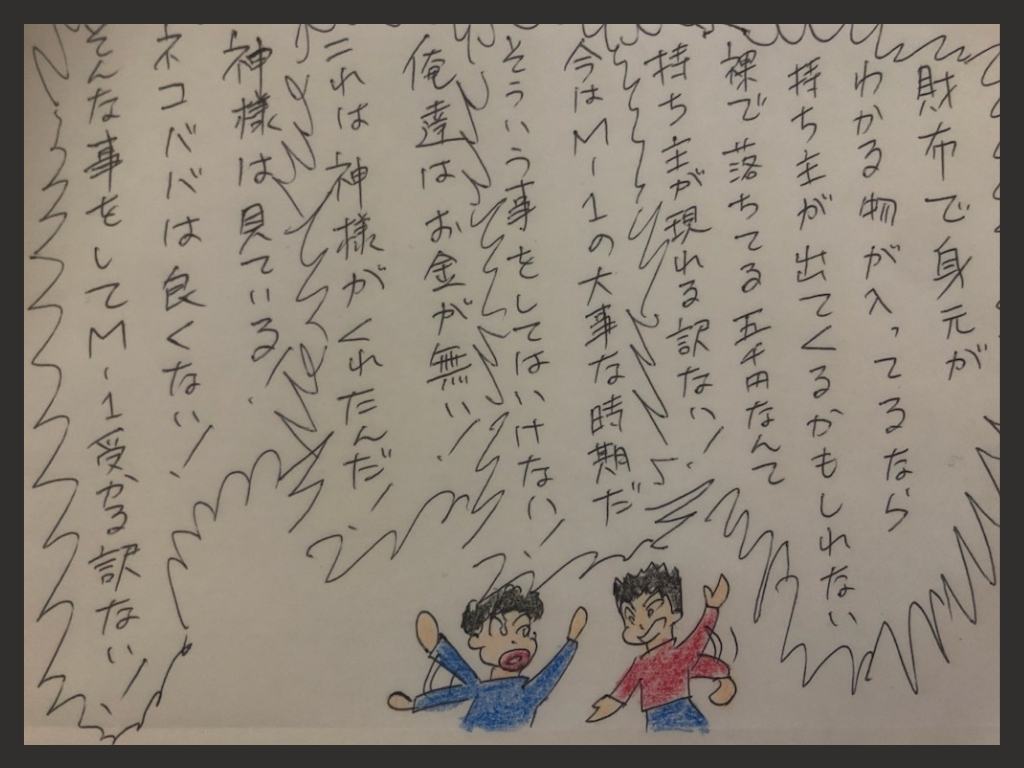 財布で身元が
わかる物が入ってるなら
持ち主が出てくるかもしれない
裸で落ちてる五千円なんて
持ち主が現れる訳ない!
今はM-1の大事な時期だ
そういう事をしてはいけない!
俺達はお金が無い!
これは神様がくれたんだ!
神様は見ている!
ネコババは良くない!
そんな事をしてM-1受かる訳ない!